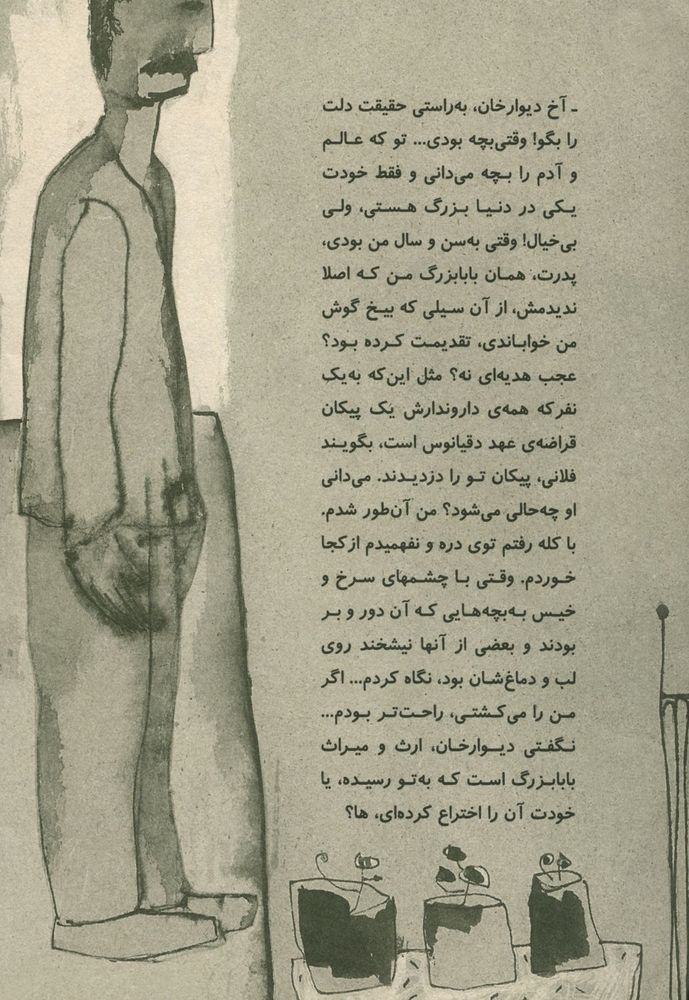 ـ آخ دیوارخان، به‌راستی حقیقت دلت
را بگو! وقتی‌بچه بودی... تو که عـالـم
و آدم را بـچه می‌دانی و فقط خودت
یـکی در دنـیـا بـزرگ هـستی، ولی
بی‌خیال! وقتی به‌سن و سال من بودی،
پدرت، همـان بابابزرگ مـن کـه اصلا
ندیدمش، از آن سـیلی که بیـخ گوش
من خوابـاندی، تقدیمـت کـرده بـود؟
عجب هدیه‌ای نه؟ مثل این‌که به‌یک
نفرکه همه‌ی داروندارش یک پیکان
قراضه‌ی عهد دقیانوس است، بگویـند
فلانی، پیکان تـو را دزدیـدند. می‌دانی
او چه‌حالی می‌شود؟ من آن‌طور شدم.
با کله رفتم توی دره و نفهمیدم ازکجا
خـوردم. وقـتی بـا چشـمهای سـرخ و
خیس به‌بچه‌هـایی کـه آن دور و بـر
بودند و بعضی از آنها نیشخند روی
لب و دماغ‌شان بود، نگاه کردم... اگر
مـن را می‌کـشتـی، راحـت‌تـر بـودم...
نـگفـتی دیـوارخـان، ارث و مـیراث
بابابـزرگ اسـت کـه به‌تـو رسیـده، یـا
خودت آن را اختراع کرده‌ای، ها؟